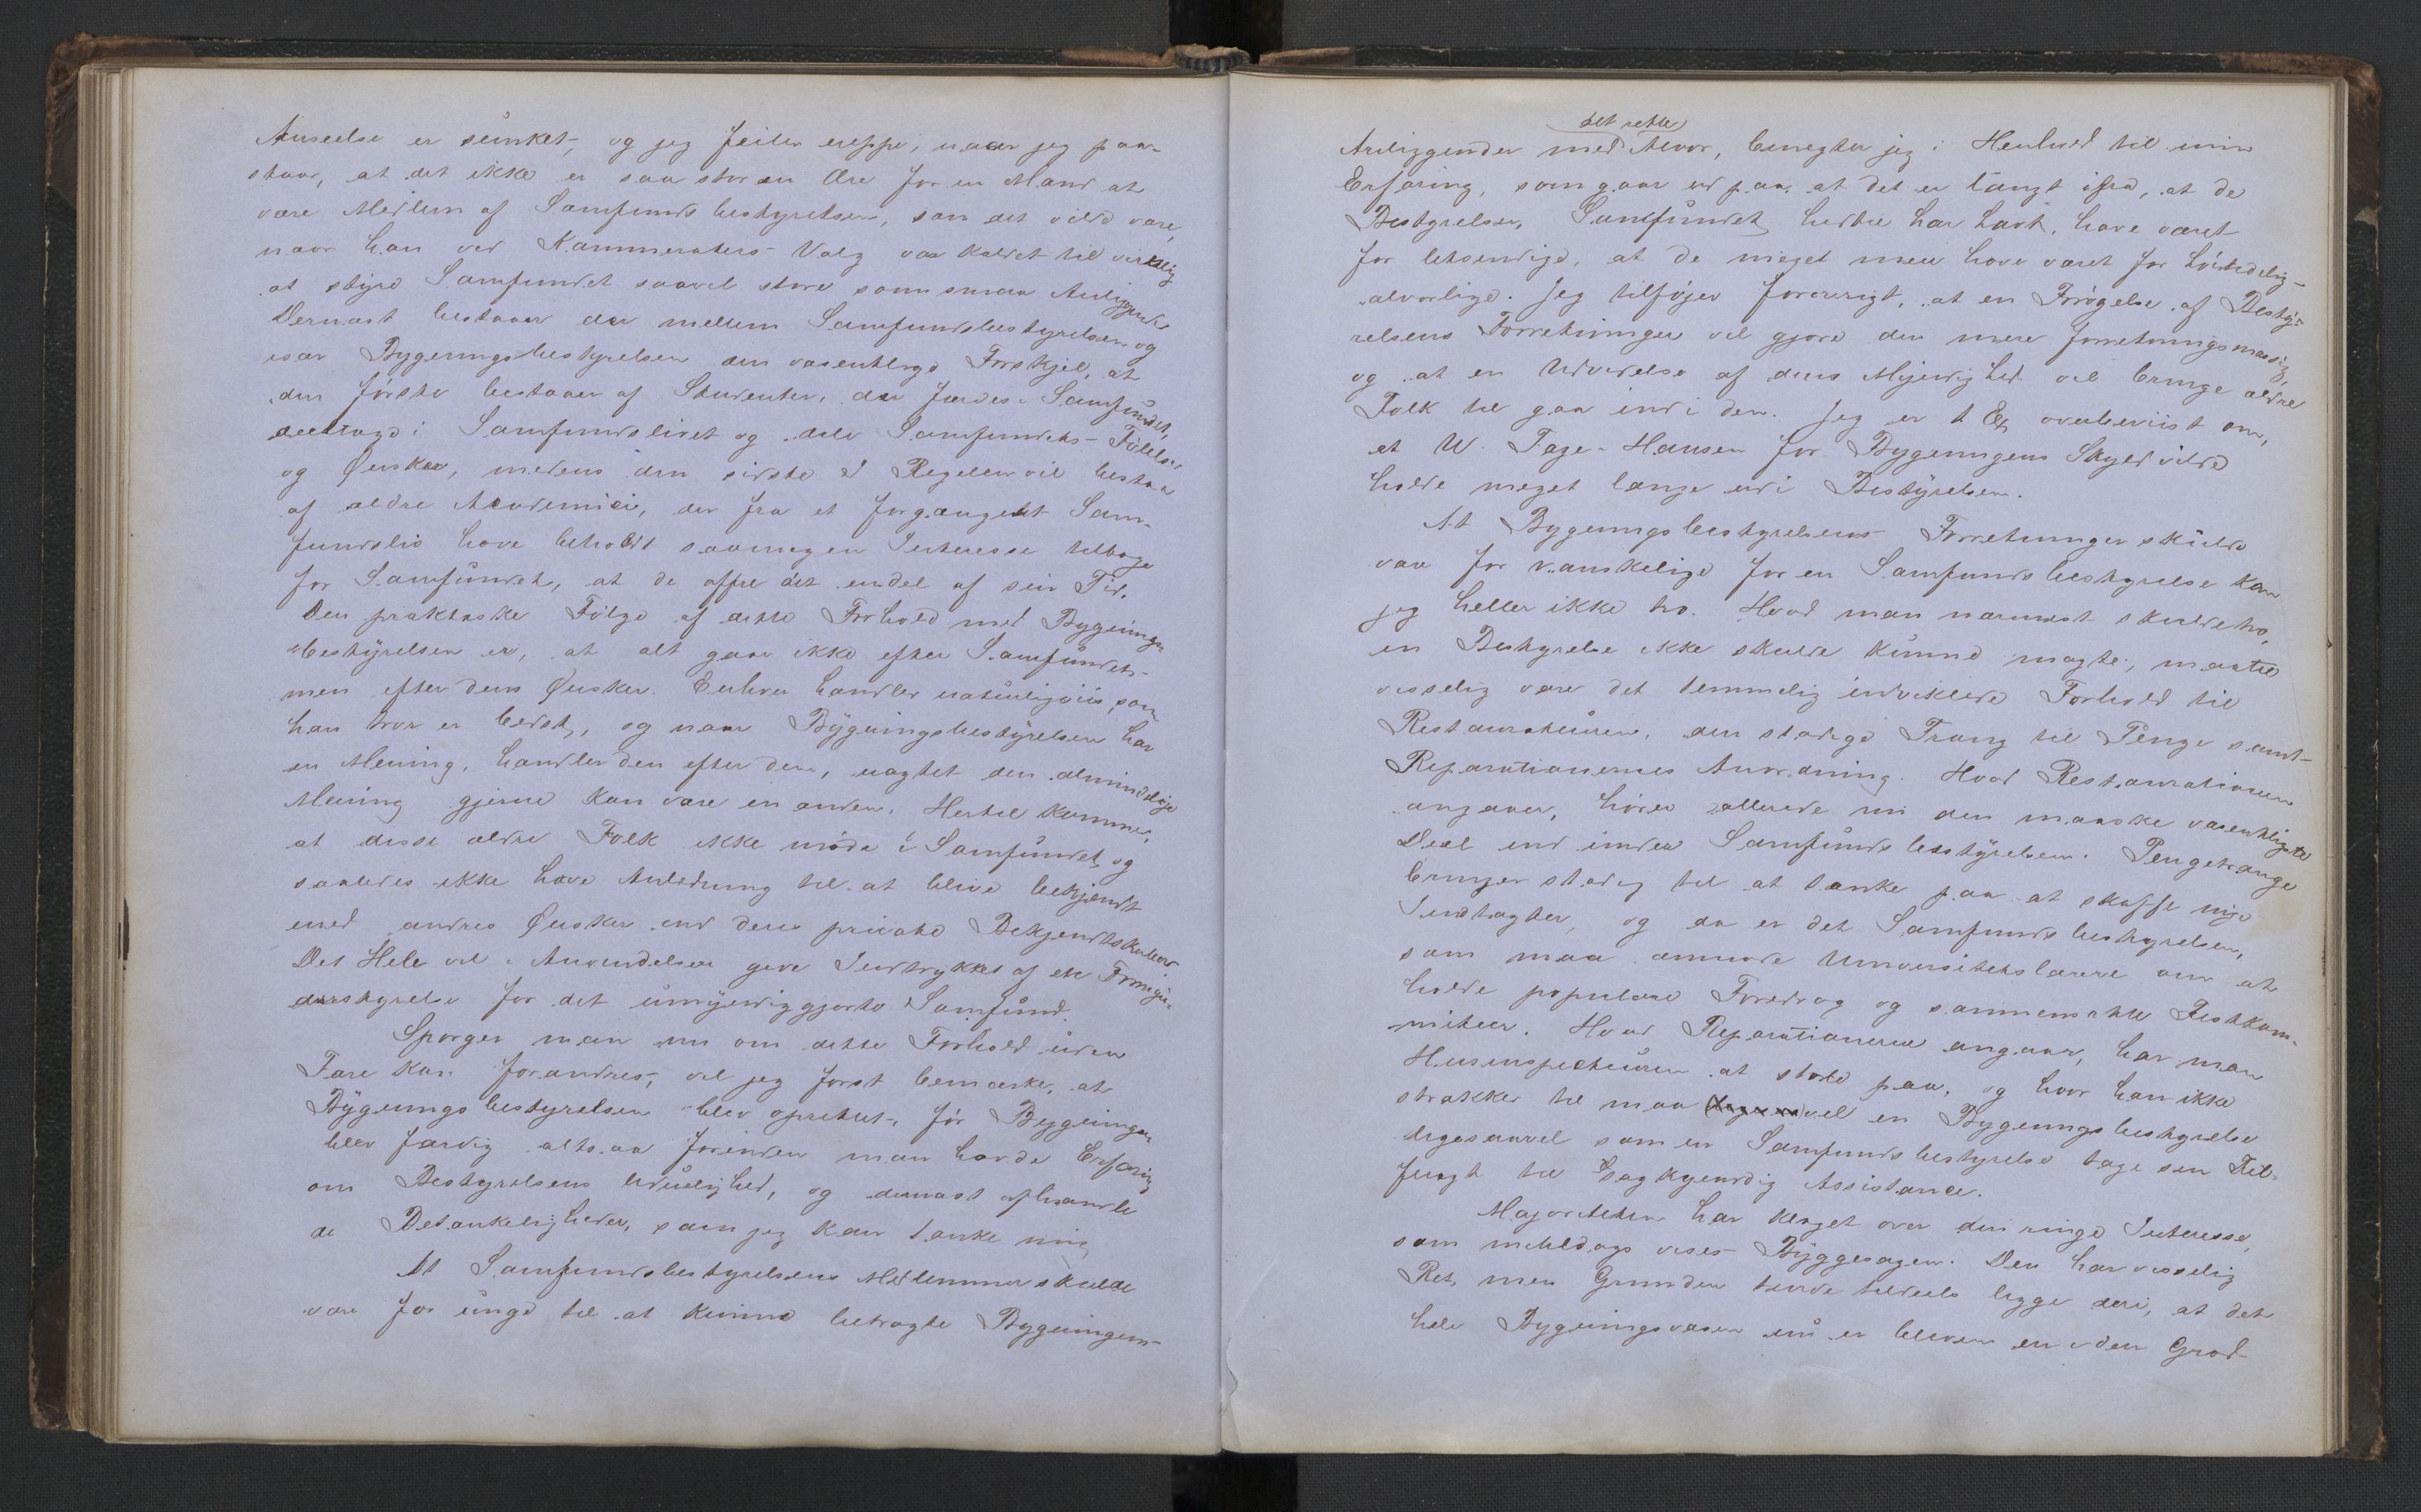 Anseelse er sunket, og jeg feiler neppe, naar jeg paa-
staar, at det ikke er saa stor en Ære for en Mand at
være Medlem af Samfundsbestyrelsen, som det vilde være,
naar han ved Kammeraters Valg var kaldet til virkelig
at styre Samfundet saavel store som smaa Anliggender
Dernæst bestaaer der mellem Samfundsbestyrelsen og
især Bygningsbestyrelsen den væsentlige Forskjel, at
den første bestaaer af Studenter, der færdes i Samfundet,
deeltage i Samfundslivet og dele Samfundets Følelser
og Ønsker, medens den sidste i Regelen vil bestaa
af ældre Academici, der fra et forgangent Sam-
fundsliv have beholdt saamegen Interesse tilbage
for Samfundet, at de offre det endel af sin Tid.
Den praktiske Følge af dette Forhold med Bygnings-
bestyrelsen er, at alt gaar ikke efter Samfundets
men efter dens Ønsker. Enhver handler naturligviis, som
han tror er bedst, og naar Bygningsbestyrelsen har
en Mening, handler den efter den, uagtet den almindelige
Mening gjerne kan være en anden. Hertil kommer,
at disse ældre Folk ikke møde i Samfundet og
saaledes ikke have Anledning til at blive bekjendt
med andres Ønsker end deres private Bekjendtskabers
Det Hele vil i Anvendelsen give Indtrykket af en Formyn-
derstyrelse for det umyndiggjorte Samfund.
Spørger man nu om dette Forhold uden
Fare kan forandres, vil jeg først bemærke, at
Bygningsbestyrelsen blev oprettet, før Bygningen
blev færdig altsaa forinden man havde Erfaring
om Bestyrelsens Uduelighed, og dernæst afhandle
de Betænkeligheder, som jeg kan tænke mig
At Samfundsbestyrelsens Medlemmer skulde
være for unge til at kunne betragte Bygningens
det rette
Anliggender med Alvor, benegter jeg i Henhold til min
Erfaring, som gaar ud paa, at det er langt ifra, at de
Bestyrelser, Samfundet hidtil har havt, have været
for letsindige, at de meget mere have været for høitidelig-
alvorlige. Jeg tilføjer forøvrigt, at en Forøgelse af Besty-
relsens Forretninger vil gjøre den mere forretningsmæssig,
og at en Udvidelse af dens Myndighed vil bringe ældre
Folk til gaa ind i den. Jeg er t. Ex. overbeviist om,
at W. Fage-Hansen for Bygningens Skyld vilde
holde meget længe ud i Bestyrelsen.
At Bygningsbestyrelsens Forretninger skulde
være for vanskelige for en Samfundsbestyrelse kan
jeg heller ikke tro. Hvad man nærmest skulde tro,
en Bestyrelse ikke skulde kunne magte, maatte
visselig være det temmelig indviklede Forhold til
Restaurateuren, den stadige Trang til Penge samt
Reparationernes Anordning. Hvad Restaurationen
angaaer, hører allerede nu den maaske væsentligste
Deel ind under Samfundsbestyrelsen. Pengetrange
bringer stadig til at tænke paa at skaffe nye
Indtægter, og da er det Samfundsbestyrelsen,
som maa anmode Universitetslærere om at
holde populære Foredrag og sammensætte Festkom-
miteer. Hvad Reparationerne angaar, har man
Husinspecteuren at stole paa, og hvor han ikke
strækker til maa vel en Bygningsbestyrelse
ligesaavel som en Samfundsbestyrelse tage sin Til-
flugt til sagkyndig Assistance.
Majoriteten har klaget over den ringe Interesse,
som mildags vises Byggesagen. Den har visselig
Ret, men Grunden turde tildeels ligge deri, at det
hele Bygningsvæsen nu er bleven en i den Grad